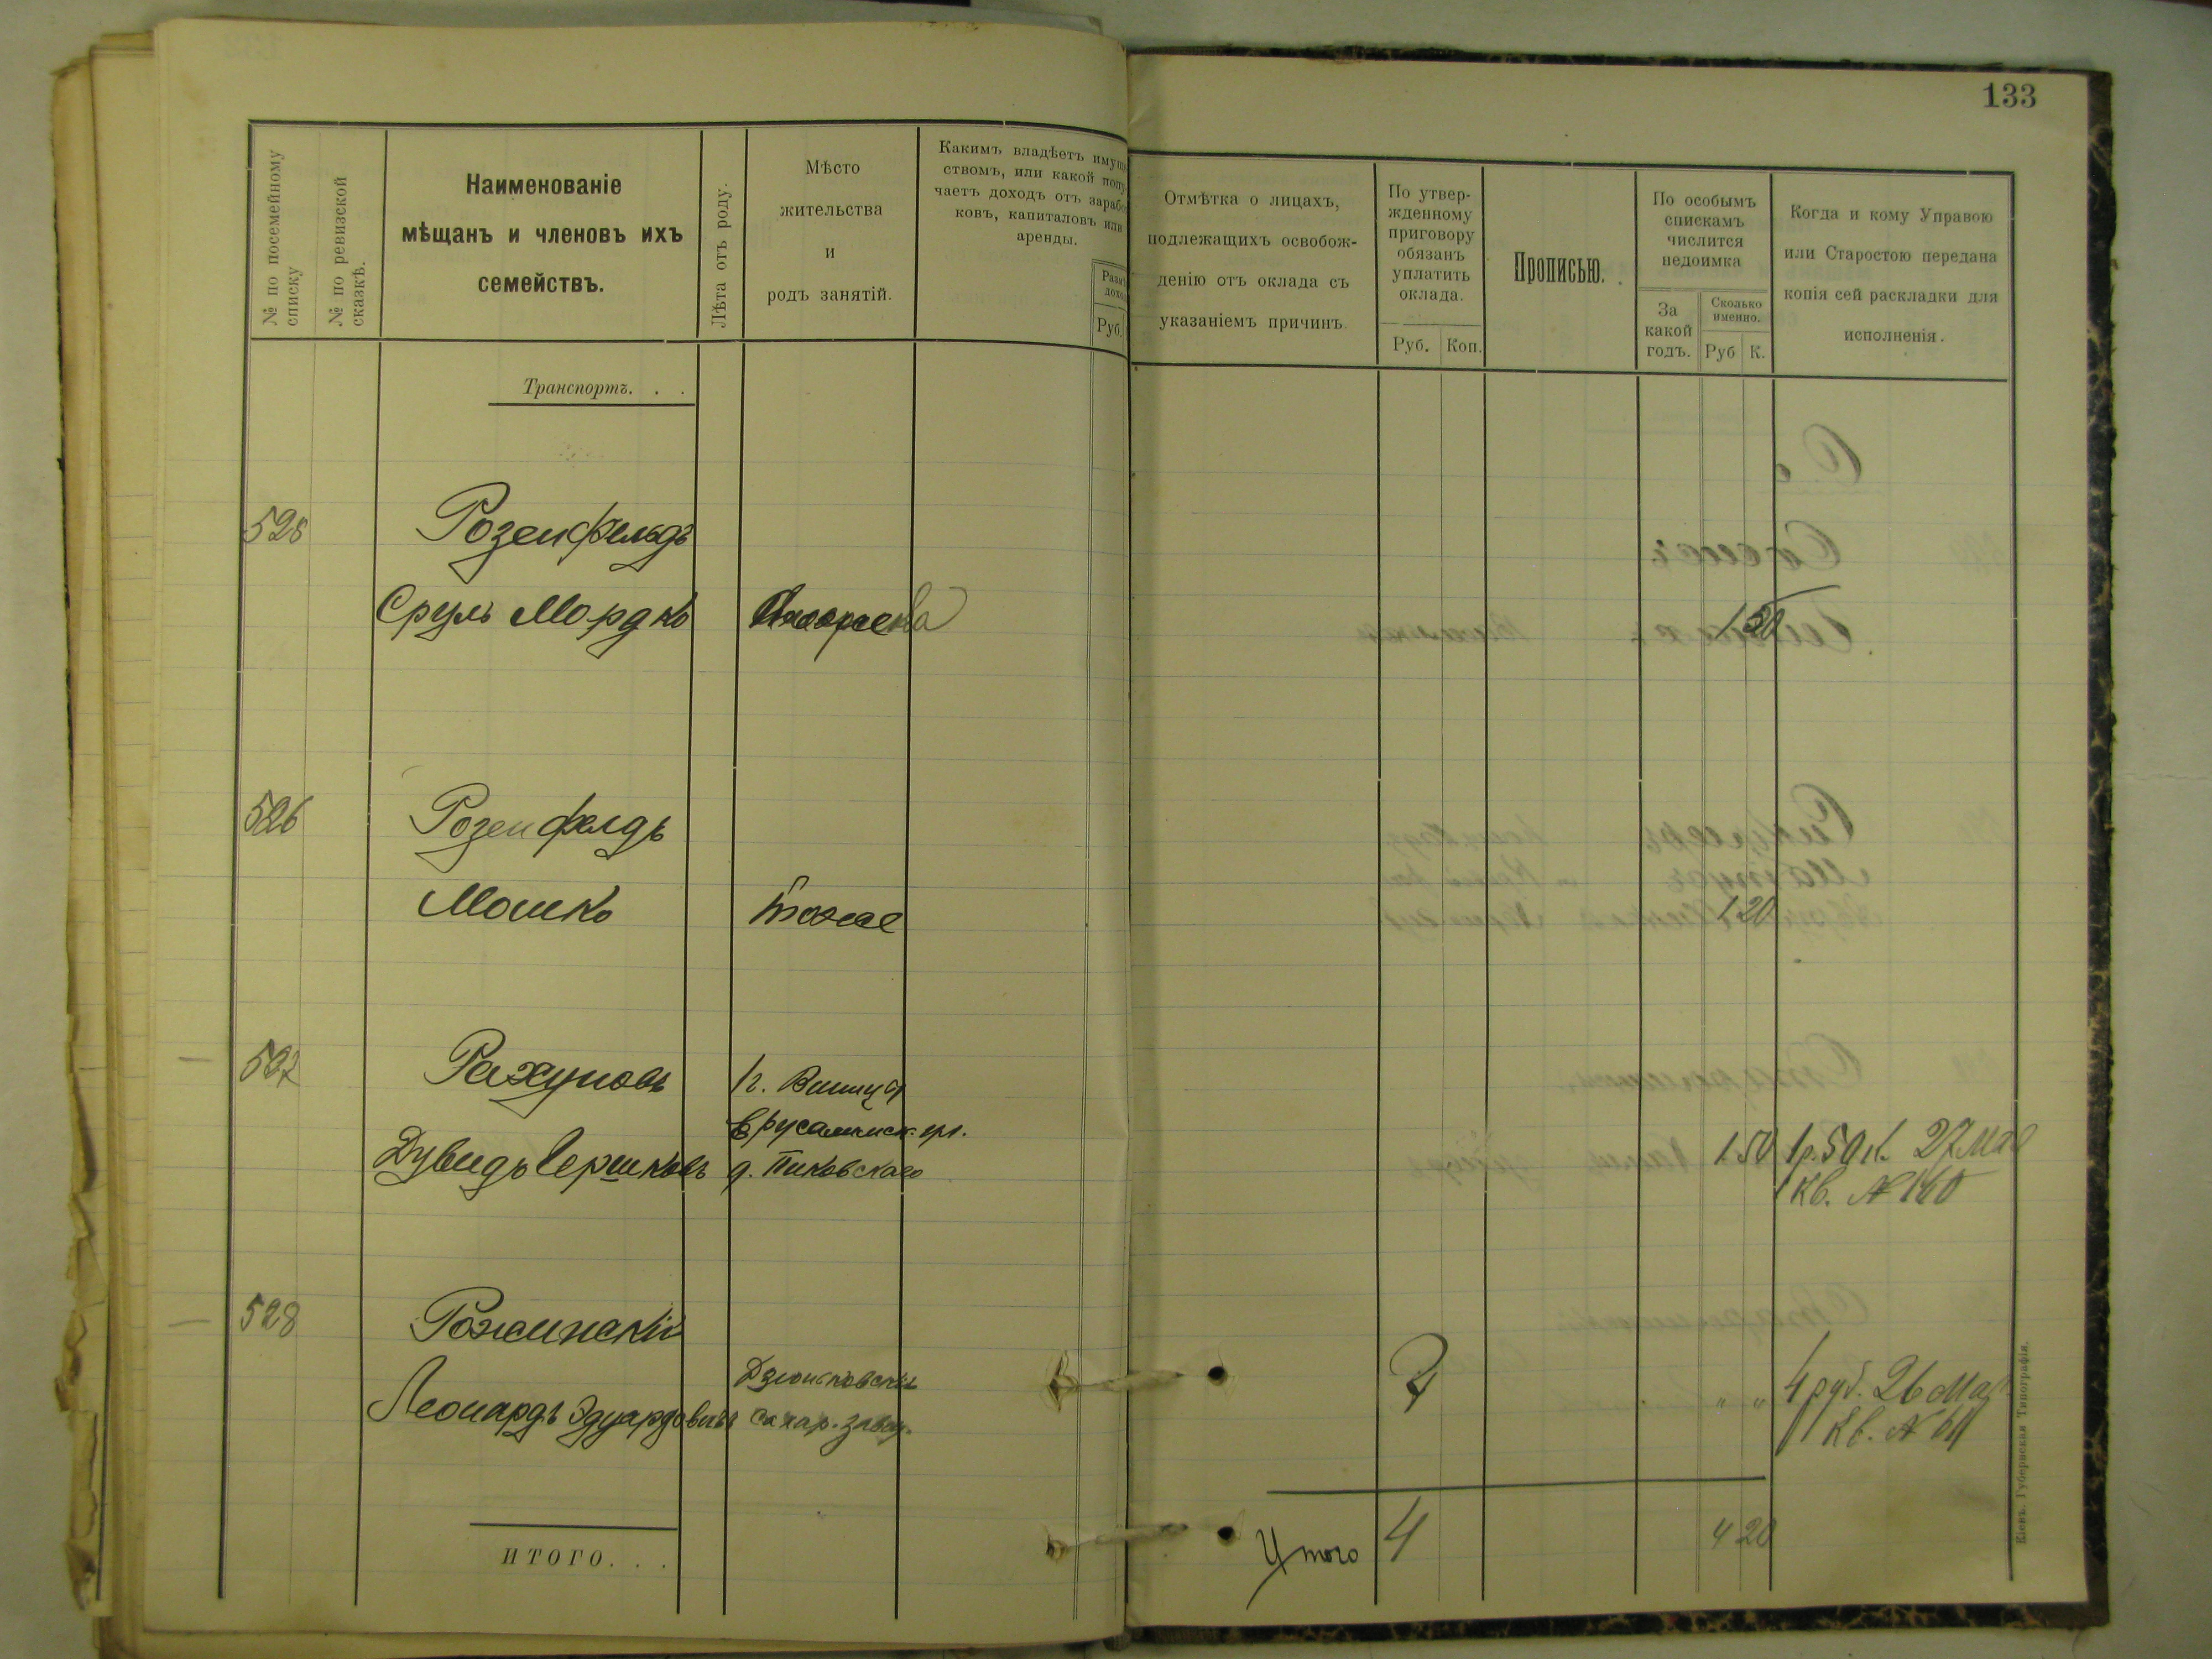 133
№ по посемейному списку
№ по ревизской сказкѣ.
Наименованіе
мѣщанъ и членовъ ихъ
семействъ.
Лѣта отъ роду.
Мѣсто
жительства
и
родъ занятій.
Какимъ владѣетъ имуще
ствомъ, или какой полу
чаетъ доходъ отъ зарабо
ковъ, капиталовъ или
аренды.
Руб.
Отмѣтка о лицахъ,
подлежащихъ освобож-
денію отъ оклада съ
указаніемъ причинъ.
По утвер-
жденному
приговору
обязанъ
уплатить
оклада.
Руб. Коп.
Прописью.
По особымъ
спискамъ
числится
недоимка
За
какой
годъ.
Сколько
именно.
Руб К.
Когда и кому Управою
или Старостою передана
копія сей раскладки для
исполненія.
Транспортъ. . .
528 Розенфельдъ
Сруль Мордко
1 50
526 Розенфелдъ
Мошко тоже 1 20
527 Рахуновъ г. Винница
Ерусалимск. ул.
Дувидъ Гершковъ д. Пиковскаго 1 50 1р. 50 к. 27 Мая
Кв. № 160
528 Рожинскій
Леонардъ Эдуардовичъ сахар. завод. " " 4 руб. 26 Мар
Кв. № 61
ИТОГО. . .
Итого 4 4 20
Кіевъ. Губернская Типографія.